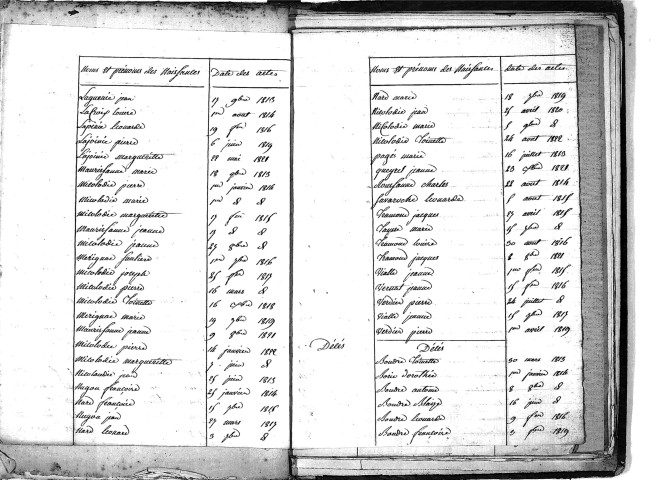 Noms et prénoms des Naissances Date des actes
Laquaire jean 17 9bre 1813
Lafont louise 1er aout 1814
Lajoinie leonarde 19 fer 1816
Lajoinie pierre 6 juin 1819
Lajoinie marguerite 22 mai 1821
Maurisanne marie 18 9bre 1813
Micolodie pierre 1er janvier 1814
Micolodie marie 1er d d
Micolodie marguerite 17 fer 1815
Maurisanne jeanne 19 d d
Micolodie jeanne 23 8bre d
Merignac 1er 7bre 1816
Micolodie joseph 25 fer 1817
Micolodie pierre 16 mars d
Micolodie Toinette 16 Xbre 1818
Merignac marie 19 9bre 1819
Maurisanne jeanne 9 8bre 1821
Micolodie pierre 14 janvier 1822
Micolodie marguerite 7 juin d
Micolaudie jean 15 juin 1813
Nugon françoise 25 janvier 1814
Nard françoise 15 9bre 1815
Nugon jean 17 mars 1817
Nard leonard 3 9bre d
Décès
Noms et prénoms des Naissances Date des actes
Nard marie 18 9bre 1819
Nicolodie jean 25 avril 1820
Nicolodie marie 5 9bre d
Nicolodie Toinette 24 aout 1822
pagé marie 16 juillet 1813
queyrel jeanne 23 Xbre 1821
charles 22 aout 1814
Savaroche leonarde 5 aout 1815
Tramond jacques 27 avril 1815
marie 15 9bre d
Tramond louise 30 aout 1816
Tramond jacques 8 8bre 1821
Vialle jeanne 1er 9bre 1815
Vernat jeanne 15 fer 1816
Verdier pierre 24 juillet d
Vialle jeanne 15 9bre 1817
Verdier pierre 1er avril 1819
Décès
Boudre Toinette 30 mars 1813
Borie dorothée 1er janvier 1814
Boudre antoine 8 8bre d
Boudre 16 juin d
Boudre leonarde 9 fer 1816
Boudre françoise 3 fer 1819